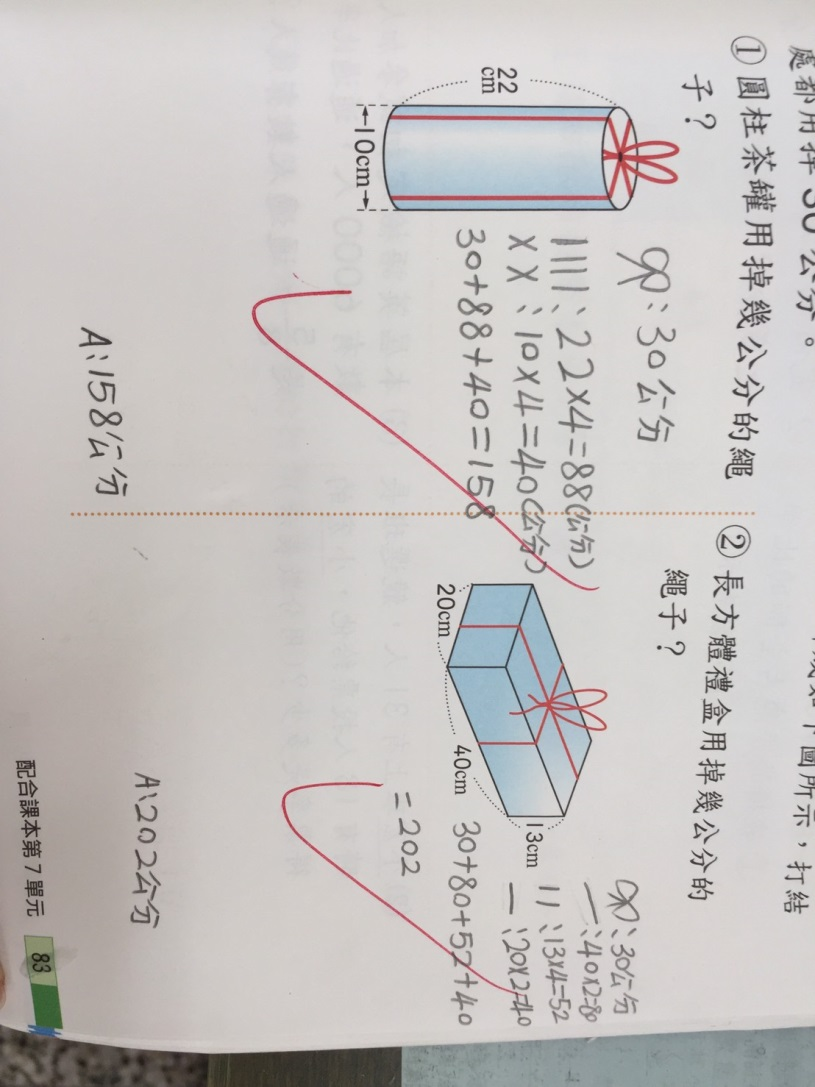 處都用掉30公分。
① 圓柱茶罐用掉幾公分的繩
子？
22
cm
10cm
:30公分
22×4=88(公分)
10×4=40(公分)
30+88+40=158
A:158公分
下圖所示，打結
② 長方體禮盒用掉幾公分的
繩子？
20cm
40cm
13cm
:30公分
40×2=80
13×4=52
20×2=40
30+80+52+40
=202
A:202公分
配合課本第7單元
83